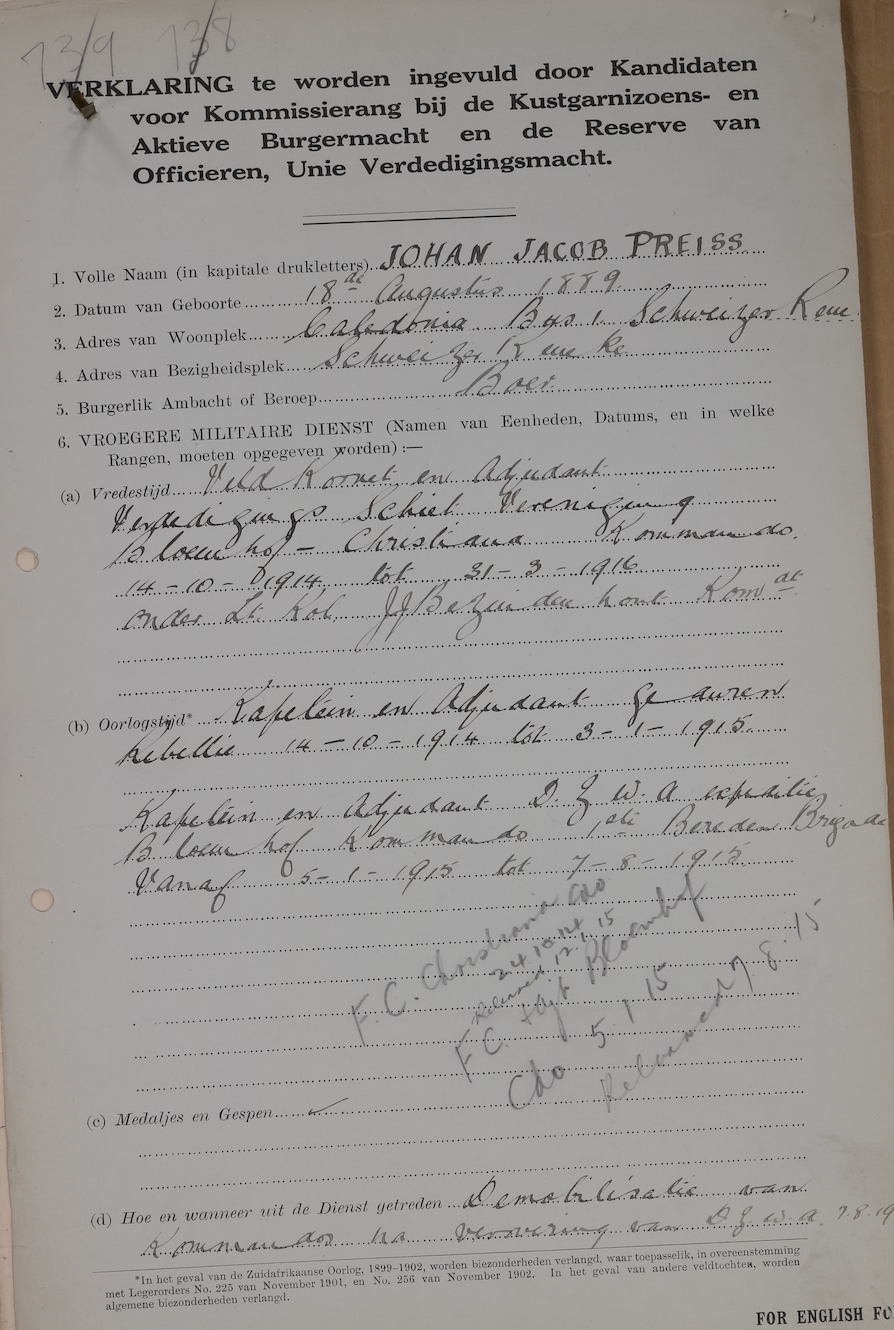 73/9 138
VERKLARING te worden ingevuld door Kandidaten
voor Kommissierang bij de Kustgarnizoens- en
Aktieve Burgermacht en de Reserve van
Officieren, Unie Verdedigingsmacht.
1. Volle Naam (in kapitale drukletters) JOHAN JACOB PREISS
2. Datum van Geboorte 18de Augustus 1889.
3. Adres van Woonplek Caledonia Bus 1 Schweizer Rene
4. Adres van Bezigheidsplek Schweizer Reneke
5. Burgerlik Ambacht of Beroep Boer
6. VROEGERE MILITAIRE DIENST (Namen van Eenheden, Datums, en in welke
Rangen, moeten opgegeven worden) :—
(a) Vredestijd Veld Kornet en Adjudant
Verdedigings Schiet Vereniging
Bloemhof - Christiana Kommando.
14-10-1914 tot 31-3-1916
onder Lt. Kol. JJ Bezuidenhout Komdt
(b) Oorlogstijd* Kapitein en Adjudant gedurende
Rebellie 14-10-1914 tot 3-1-1915.
Kapitein en Adjudant D. Z. W. A. expeditie
Bloemhof Kommando 1ste Bereden Brigade
Vanaf 5-1-1915 tot 7-8-1915.
F. C. Christiana Cdo
24.10.14
Released 12.1.15
F C. + Adjt Bloemhof
Cdo 5 1 15
Released 7. 8. 15
(c) Medaljes en Gespen
(d) Hoe en wanneer uit de Dienst getreden Demobilisatie van
Kommandos na verovering van D. Z. W. A. 7.8.19
*In het geval van de Zuidafrikaanse Oorlog, 1899–1902, worden biezonderheden verlangd, waar toepasselik, in overeenstemming
met Legerorders No. 225 van November 1901, en No. 256 van November 1902. In het geval van andere veldtochten, worden
algemene biezonderheden verlangd.
FOR ENGLISH FO